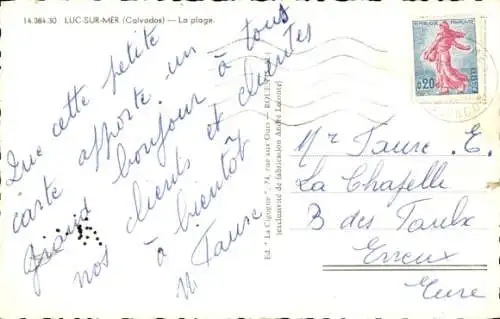 14.384.30 LUC-SUR-MER (Calvados) — La plage.
Que cette petite
carte apporte un
bonjour à tous
nos clients et clientes
à bientôt
M Faure
Ed. "La Cigogne" - 74, rue aux Ours - ROUEN
(exclusivité de fabrication André Leconte)
REPUBLIQUE FRANÇAISE
0,20
POSTES
Mr Faure. E.
La Chapelle
B des Faulx
Evreux
Eure